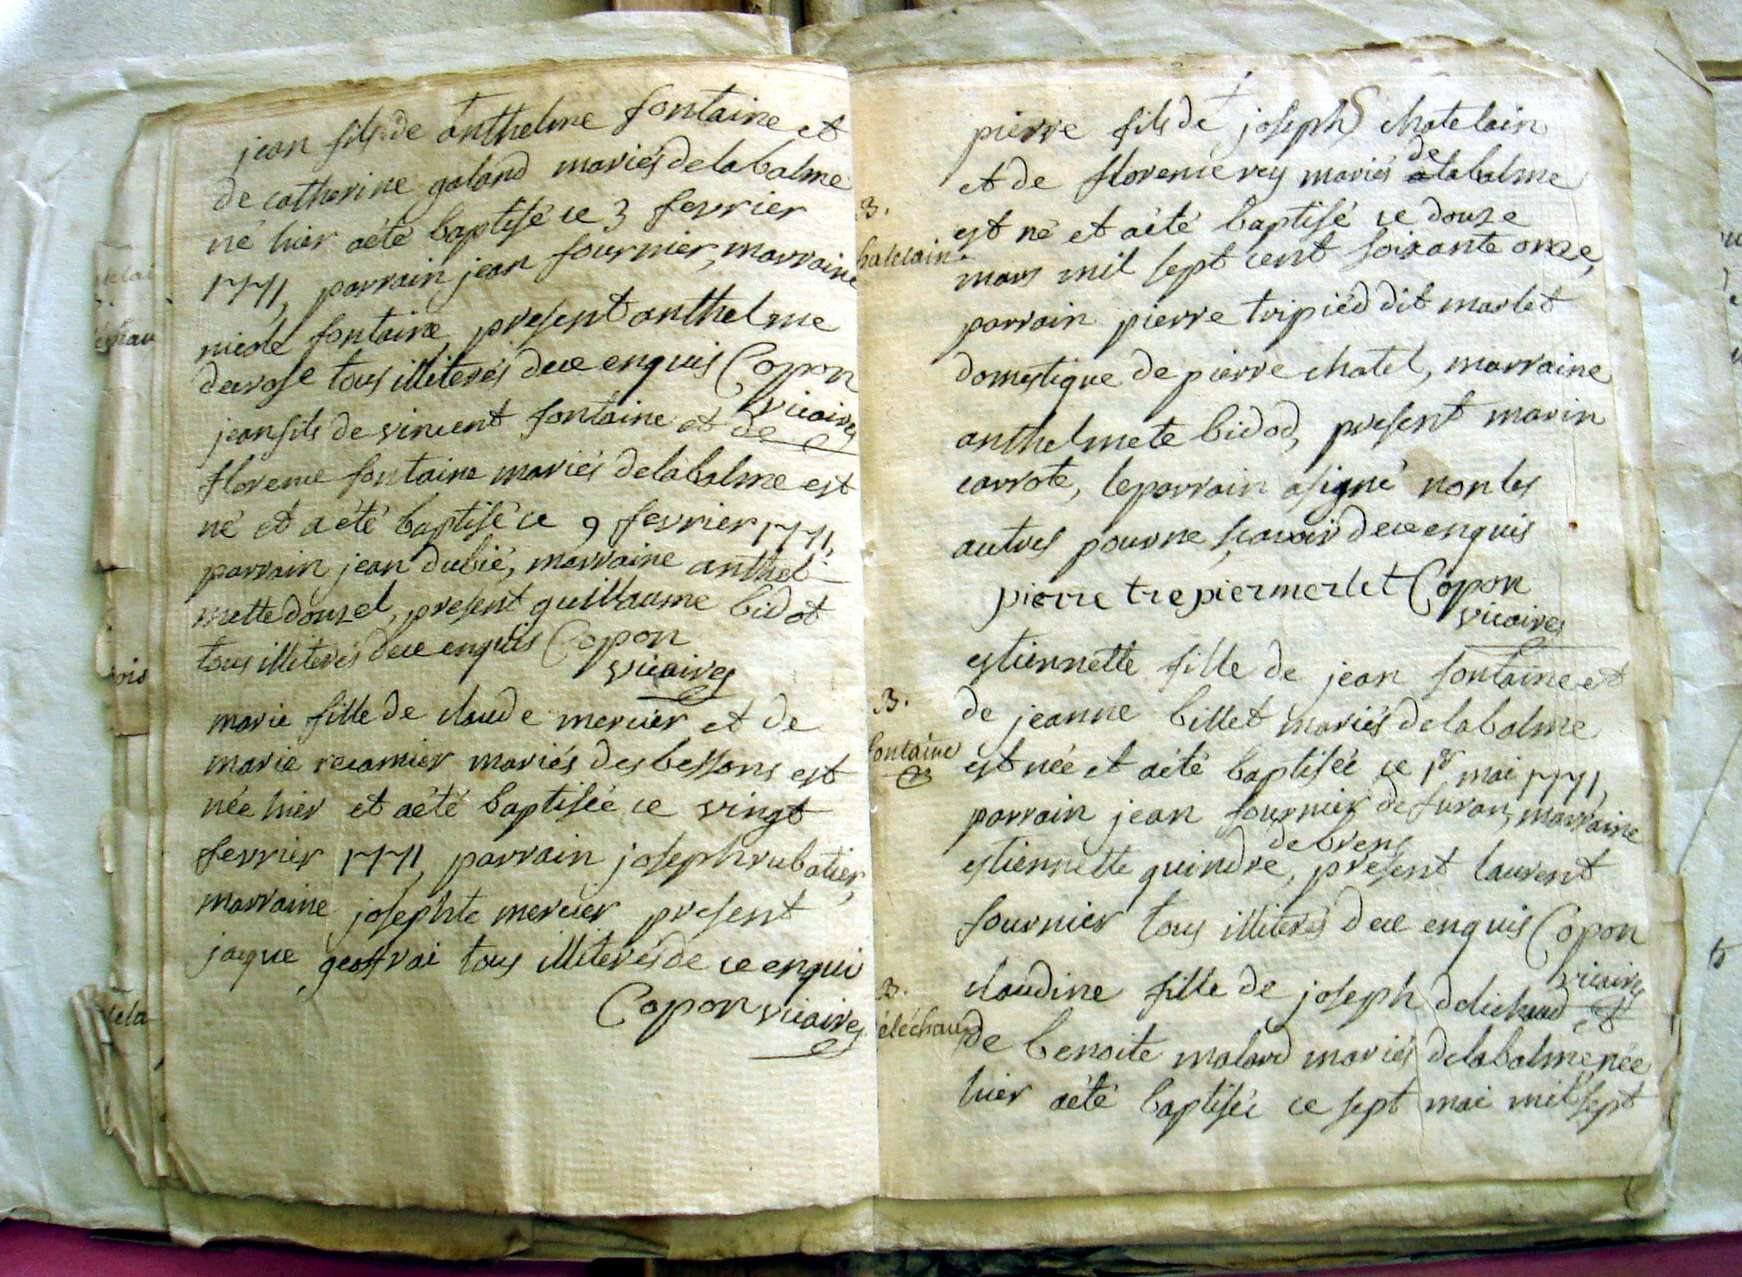 jean fils de anthelme fontaine et
de catherine galand mariés de la balme
né hier a été baptisé ce 3 fevrier
1771, parrain jean fournier, marraine
nicole fontaine, present anthelme
derose tous illiterés de ce enquis Copon
vicaire
jean fils de vincent fontaine et de
florence fontaine mariés de la balme est
né et a été baptisé ce 9 fevrier 1771,
parrain jean dubié, marraine anthel-
mette douzel, present guillaume bidot
tous illiterés de ce enquis Copon
vicaire
marie fille de claude mercier et de
marie recamier mariés des bessons est
née hier et a été baptisée ce vingt
fevrier 1771, parrain joseph rubatier,
marraine josephte mercier present
jaque geoffrai tous illiterés de ce enqui
Copon vicaire
pierre fils de joseph chatelain
et de florence rey mariés de la balme
B.
est né et a été baptisé ce douze
hatelain
mars mil sept cent soixante onze,
parrain pierre tripiéd dit marlet
domestique de pierre chatel, marraine
anthelmete bidod, present marin
carrote, le parrain a signé non les
autres pour ne sçavoir de ce enquis
pierre trepier merlet Copon
vicaire
estiennette fille de jean fontaine et
B.
de jeanne billet mariés de la balme
fontaine
est née et a été baptisée ce 1er mai 1771,
parrain jean fournier de furan, marraine
de bren
estiennette guindre, present laurent
fournier tous illiterés de ce enquis Copon
vicaire
B.
claudine fille de joseph delichaud et
éléchaud
de benoite malard mariés de la balme née
hier a été baptisée ce sept mai mil sept